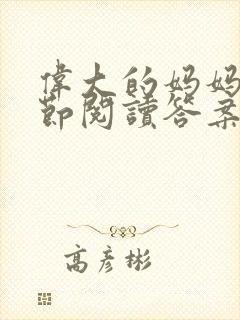 偉大的媽媽
節閱讀答案
高彥彬